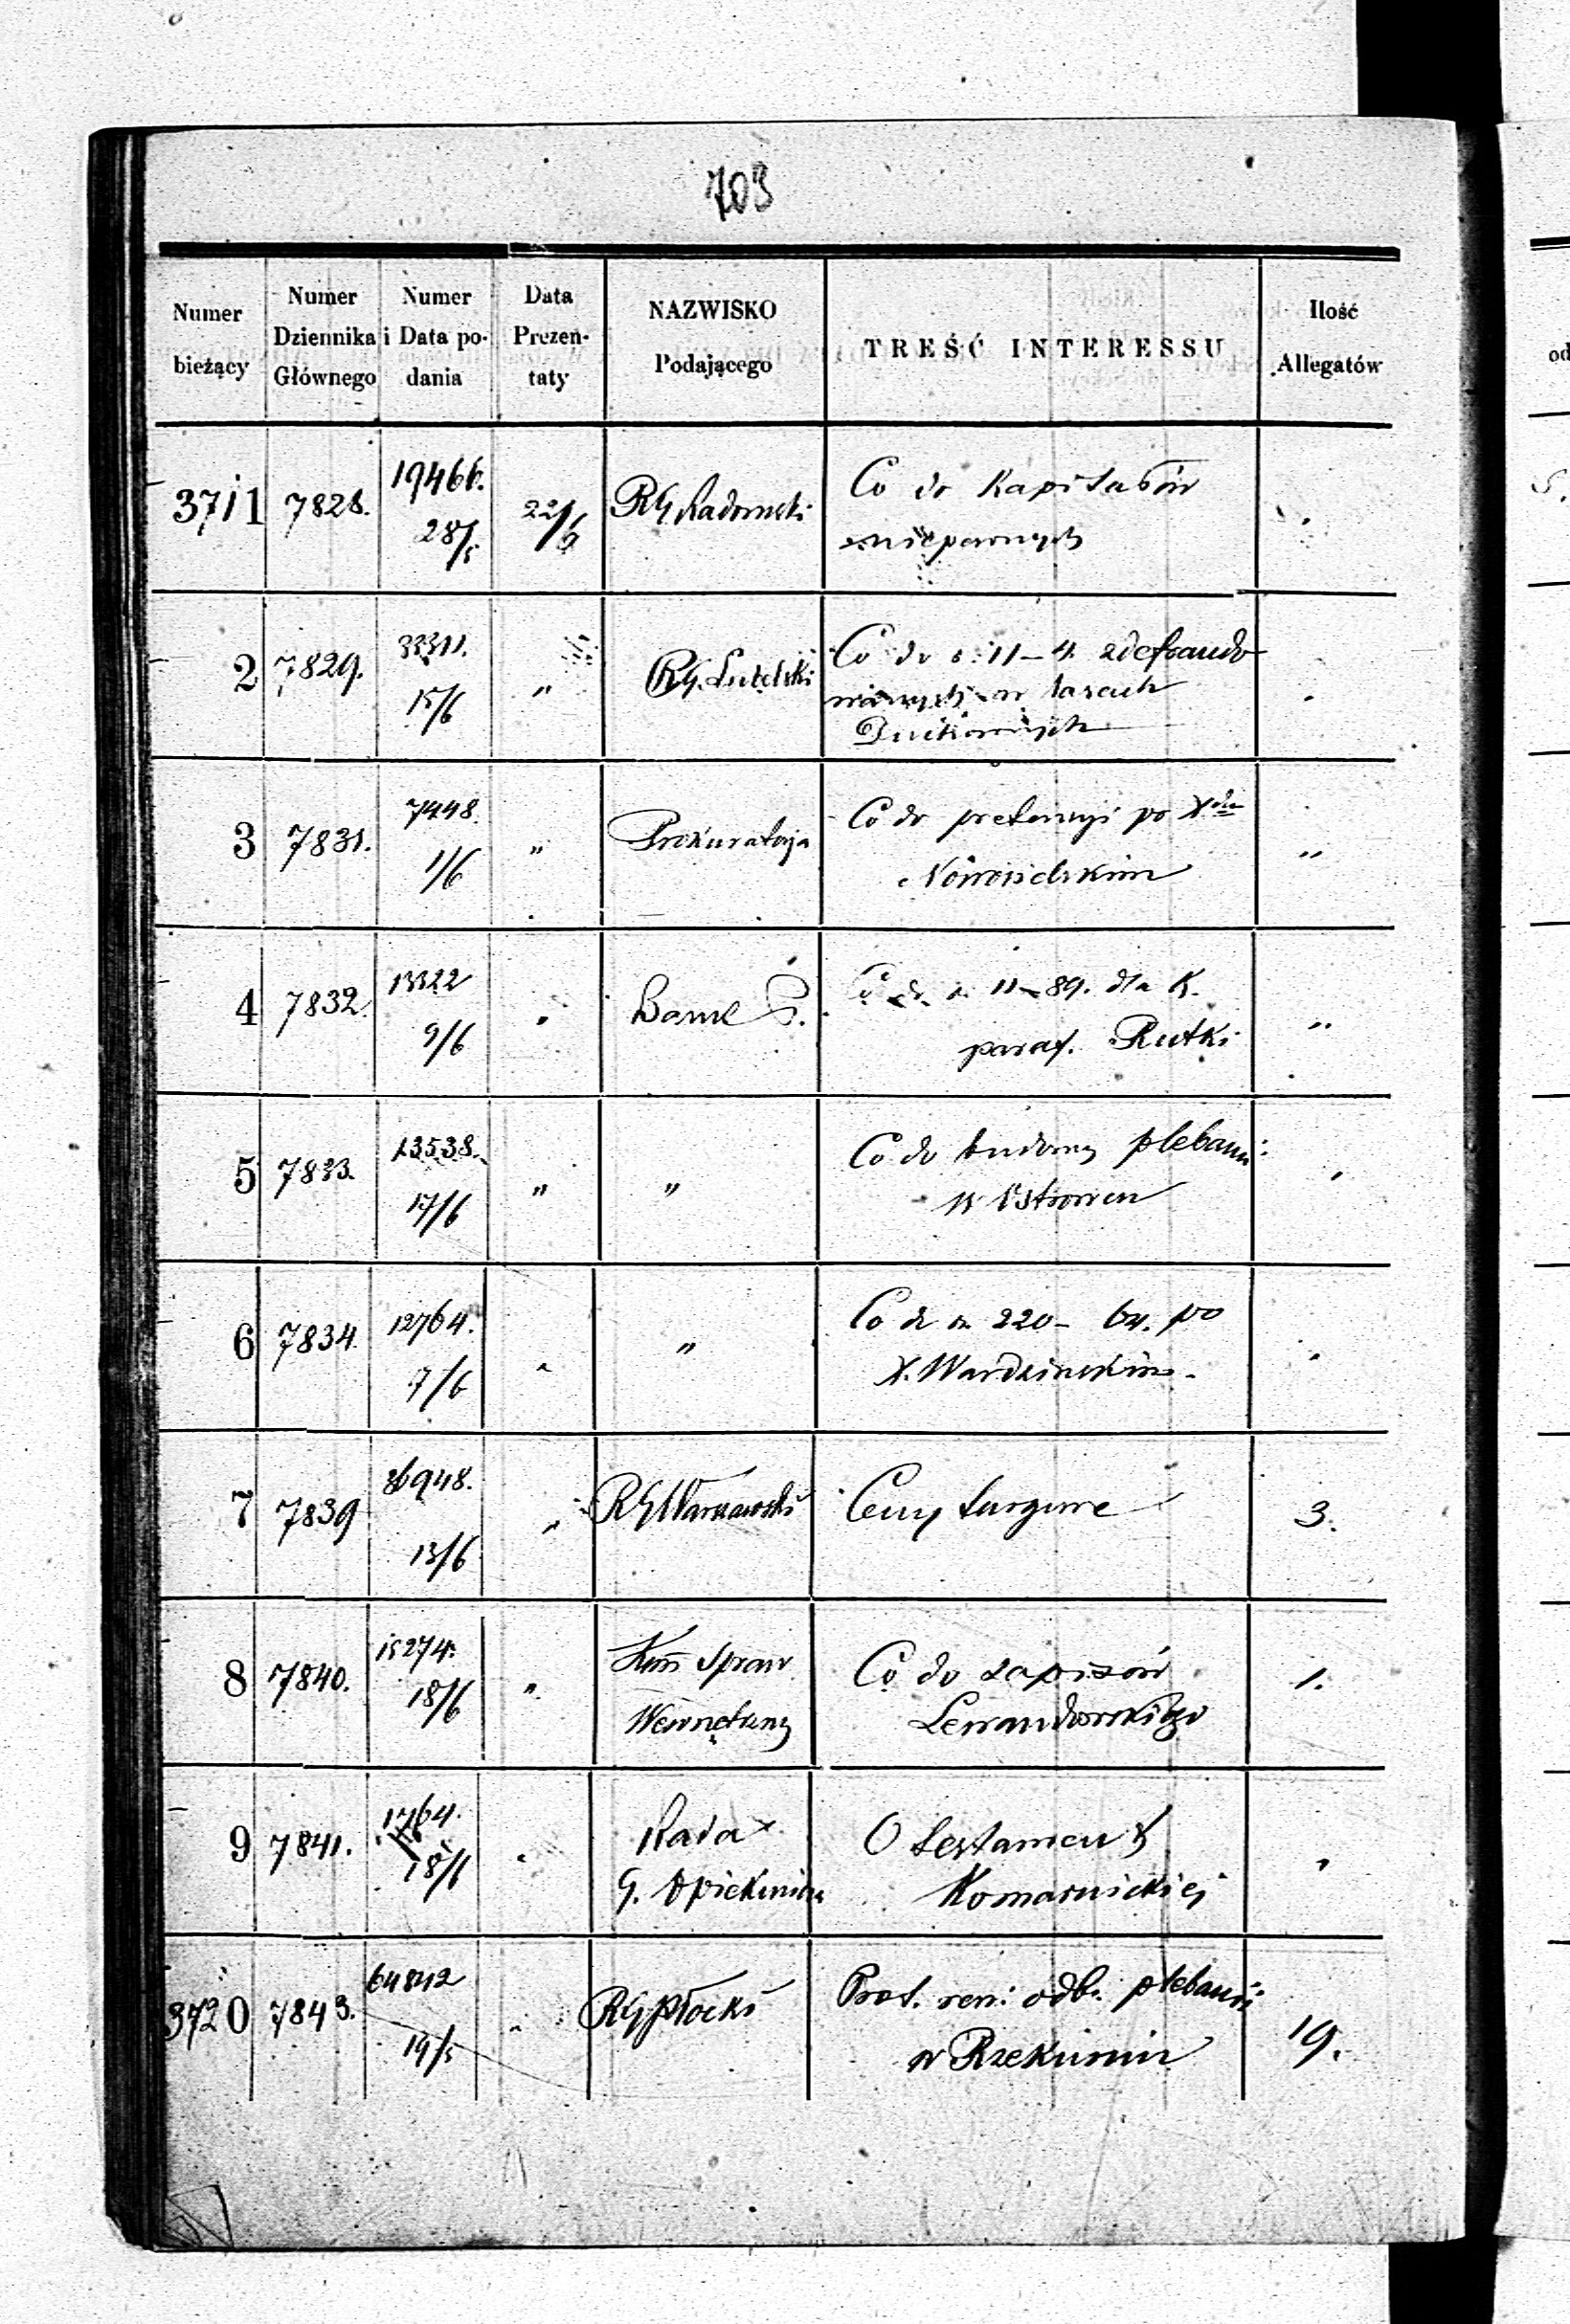 703
Numer bieżący | Numer Dziennika Głównego | Numer i Data podania | Data Prezentaty | NAZWISKO Podającego | TREŚĆ INTERESSU | Ilość Allegatów
3711 7828. 19466. 22/6 RG Radomski Co do Kapitałów
28/5 niepewnych
2 7829. 33311. " RG. Lubelski Co do 11-4 zdefraudo
15/6 wanych w lasach
3 7831. 7448. " Prokuratorja Co do pretensyi po Xdzu
1/6 Nowosielskim "
4 7832. 13322 " Co do 11-89. dla K.
9/6 paraf. Rutki "
5 7833. 13538. " " Co do budowy plebanii
17/6 w Ostrowcu
6 7834. 12764. " " Co do 220- po
7/6 X. Wardzińskim.
7 7839 36948. " RG Warszawski Ceny targowe 3.
13/6
8 7840. 15274. " Kom Spraw Co do zapisów 1.
18/6 Wewnętrzny Lewandowskiego
9 7841. 1764. " Rada O testamen
18/6 G. Opiekuńcza Komarnickiej "
3720 7843. 64842 " RG Płocki Prot. rew. odb. plebanii
19/5 w Rzekuniu 19.